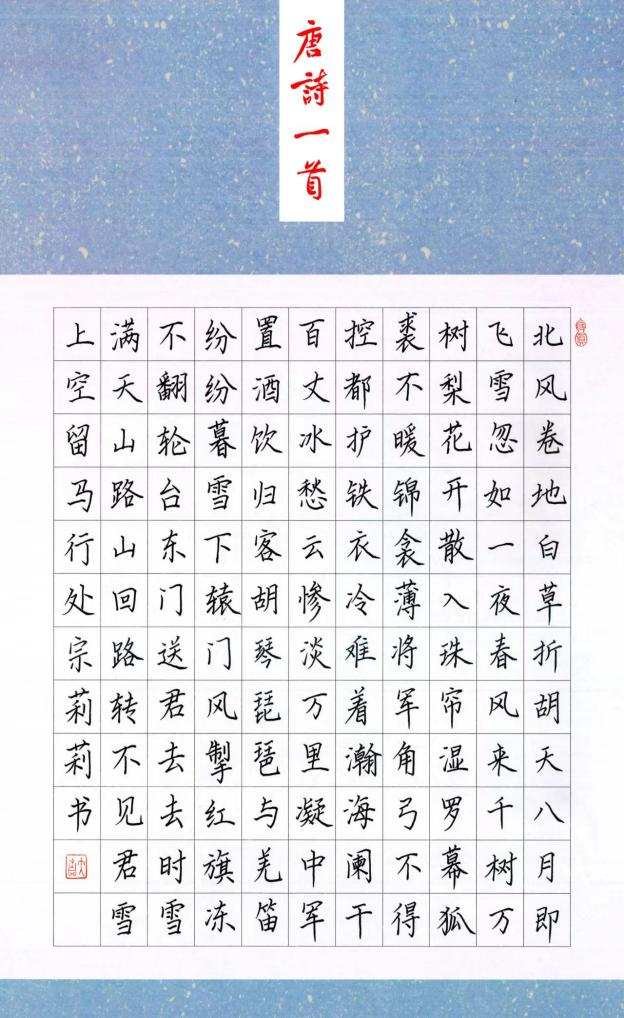 唐詩一首
北风卷地白草折胡天八月即
飞雪忽如一夜春风来千树万
树梨花开散入珠帘湿罗幕狐
裘不暖锦衾薄将军角弓不得
控都护铁衣冷难着瀚海阑干
百丈冰愁云惨淡万里凝中军
置酒饮归客胡琴琵琶与羌笛
纷纷暮雪下辕门风掣红旗冻
不翻轮台东门送君去去时雪
满天山路山回路转不见君雪
上空留马行处宗莉莉书